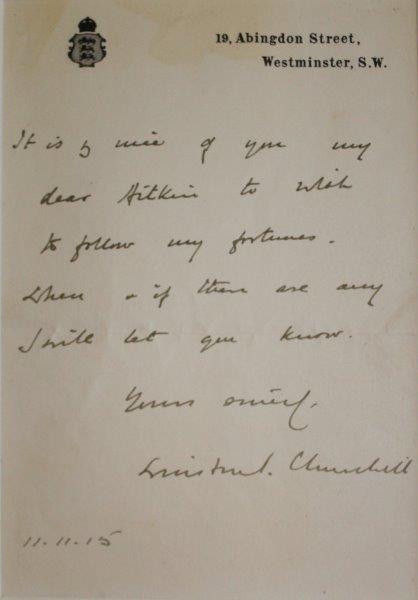 19, Abingdon Street,
Westminster, S.W.
It is so nice of you my
dear Aitkin to wish
to follow my fortunes.
When & if there are any
I will let you know.
Yours sincerely,
Winston S. Churchill
11.11.15